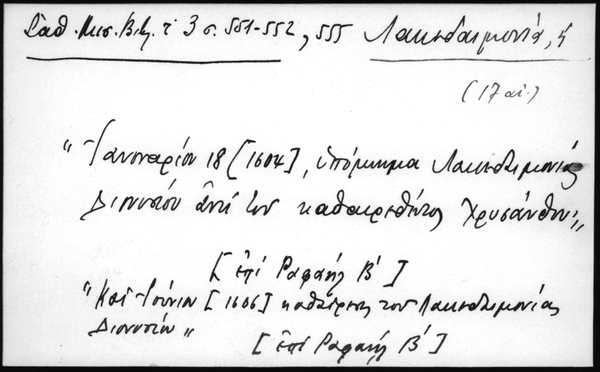 Σαθ. Μεσ. Βιβ. τ 3 σ. 551-552, 555 Λακεδαιμονία, 5
(17 αι.)
"Ἰαννουαρίου 18 [1604], ὑπόμνημα Λακεδαιμονίας
Διονυσίου ἀντὶ τοῦ καθαιρεθέντος Χρυσάνθου"
[ἐπὶ Ραφαὴλ Β']
"Καὶ Ἰουνίου [1606] καθαίρεσις τοῦ Λακεδαιμονίας
Διονυσίου"
[ἐπὶ Ραφαὴλ Β']